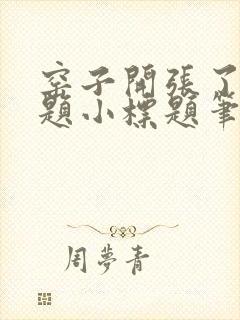 窑子開張了
題小標題筆
周夢青